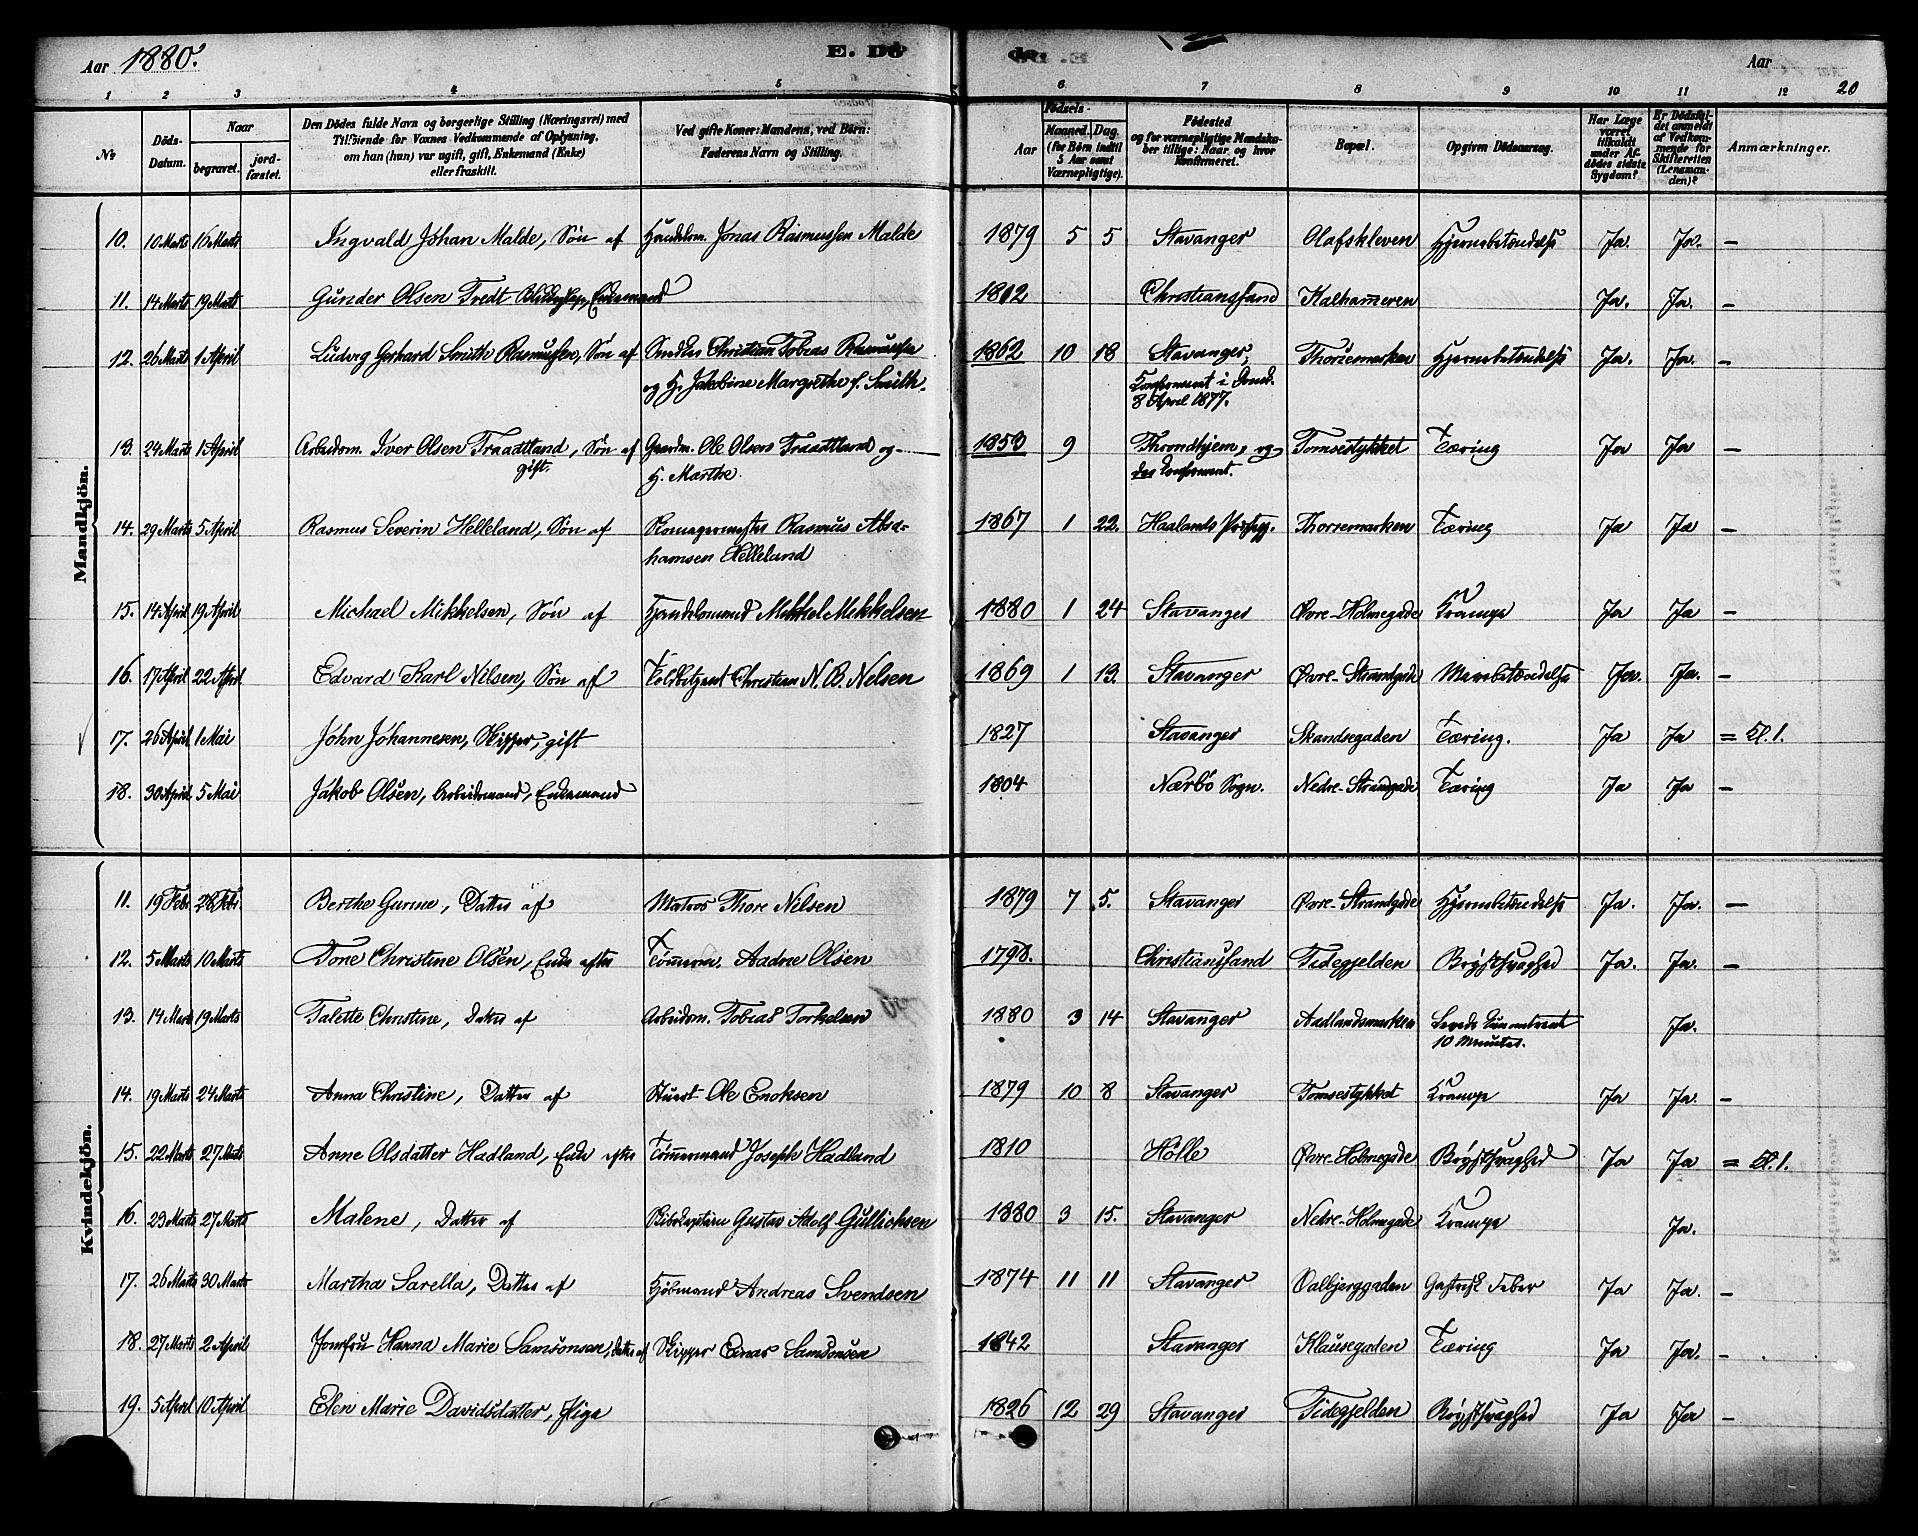 Aar 1880. E. Dö de. Aar 20
1 2 3 4 5 6 7 8 9 10 11 12
№ Döds-Datum. Naar begravet. jord-fæstet. Den Dödes fulde Navn og borgerlige Stilling (Næringsvei) med Tilföiende for Voxnes Vedkommende af Oplysning, om han (hun) var ugift, gift, Enkemand (Enke) eller fraskilt. Ved gifte Koner: Mandens, ved Börn: Faderens Navn og Stilling. Födsels- Aar Maaned. Dag. (for Börn indtil 5 Aar samt Værnepligtige). Födested og for værnepligtige Mandskaber tillige: Naar og hvor Konfirmeret. Bopæl. Opgiven Dödsaarsag. Har Læge været tilkaldt under Afdödes sidste Sygdom? Er Dödsfaldet anmeldt af Vedkommende for Skifteretten (Lensmanden)? Anmærkninger.
Mandkjön.
10. 10 Marts 16 Marts Ingvald Johan Malde, Sön af Handelsm. Jonas Rasmussen Malde 1879 5 5 Stavanger Olafskleven Hjernebetændelse Ja. Ja. —
11. 14 Marts 19 Marts Gunder Olsen Tvedt Enkemand 1812 Christianssand Kalhameren Ja. Ja. —
12. 26 Marts 1 April Ludvig Gerhard Smith Rasmussen, Sön af Snedker Christian Tobias Rasmussen 1862 10 18 Stavanger, Thorsemarken Hjernebetændelse Ja. Ja. —
og H. Jakobine Margrethe f. Smith. Konfirmeret i Domk.
8 April 1877.
13. 24 Marts 1 April Arbeidsm. Iver Olsen Traadtland, Sön af Gaardm. Ole Olsen Traadtland og 1853 9 Throndhjem, og Tomsestykket Tæring Ja Ja —
gift H. Marthe. der konfirmeret.
14. 29 Marts 5 April Rasmus Severin Helleland, Sön af Garnagermester Rasmus Abra- 1867 1 22. Haalands Præstegj. Thorsemarken Tæring Ja Ja —
hamsen Helleland
15. 14 April 19 April Michael Mikkelsen, Sön af Handelsmand Mikkel Mikkelsen 1880 1 24 Stavanger Øvre-Holmegade Krampe Ja Ja —
16. 17 April 22 April Edvard Karl Nilsen, Sön af Toldbetjent Christian N. B. Nelsen 1869 1 13. Stavanger Øvre-Strandgade Mavebetændelse Ja. Ja. —
17. 26 April 1 Mai John Johannesen, Skipper, gift 1827 Stavanger Skandsegaden Tæring. Ja Ja = Kl. 1.
18. 30 April 5 Mai Jakob Olsen, Arbeidsmand, Enkemand 1804 Nærbö Sogn. Nedre-Strandgade Tæring Ja Ja —
Kvindekjön.
11. 19 Febr 28 Febr Berthe Gurine, Datter af Matros Thore Nelsen 1879 7 5. Stavanger Øvre-Strandgade Hjernebetændelse Ja. Ja. —
12. 5 Marts 10 Marts Tone Christine Olsen, Enke efter Tömmerm. Aadne Olsen 1798. Christianssand Tidegjelden Brystsvaghed Ja. Ja. —
13. 14 Marts 19 Marts Talette Christine, Datter af Arbeidsm. Tobias Torkelsen 1880 3 14 Stavanger Aadlandsmarken Levede kun omtrent Ja.
10 Minuter.
14. 19 Marts 24 Marts Anna Christine, Datter af Stuert Ole Enoksen 1879 10 8 Stavanger Tomsestykket Krampe Ja Ja. —
15. 22 Marts 27 Marts Anne Olsdatter Hadland, Enke efter Tömmermand Joseph Hadland 1810 Hölle Øvre-Holmegade Brystsvaghed Ja Ja = Kl. 1.
16. 23 Marts 27 Marts Malene, Datter af Gustav Adolf Gullichsen 1880 3 15. Stavanger Nedre-Holmegade Krampe Ja.
17. 26 Marts 30 Marts Martha Sarella, Datter af Kjöbmand Andreas Svendsen 1874 11 11 Stavanger Valbjerggaden Gastrisk Feber Ja Ja. —
18. 27 Marts 2 April Jomfru Hanna Marie Samsonsen, Datter af Skipper Einar Samsonsen 1842 Stavanger Klausegaden Tæring Ja Ja. —
19. 5 April 10 April Elen Marie Davidsdatter, Pige 1826 12 29 Stavanger Tidegjelden Brystsvaghed Ja Ja —